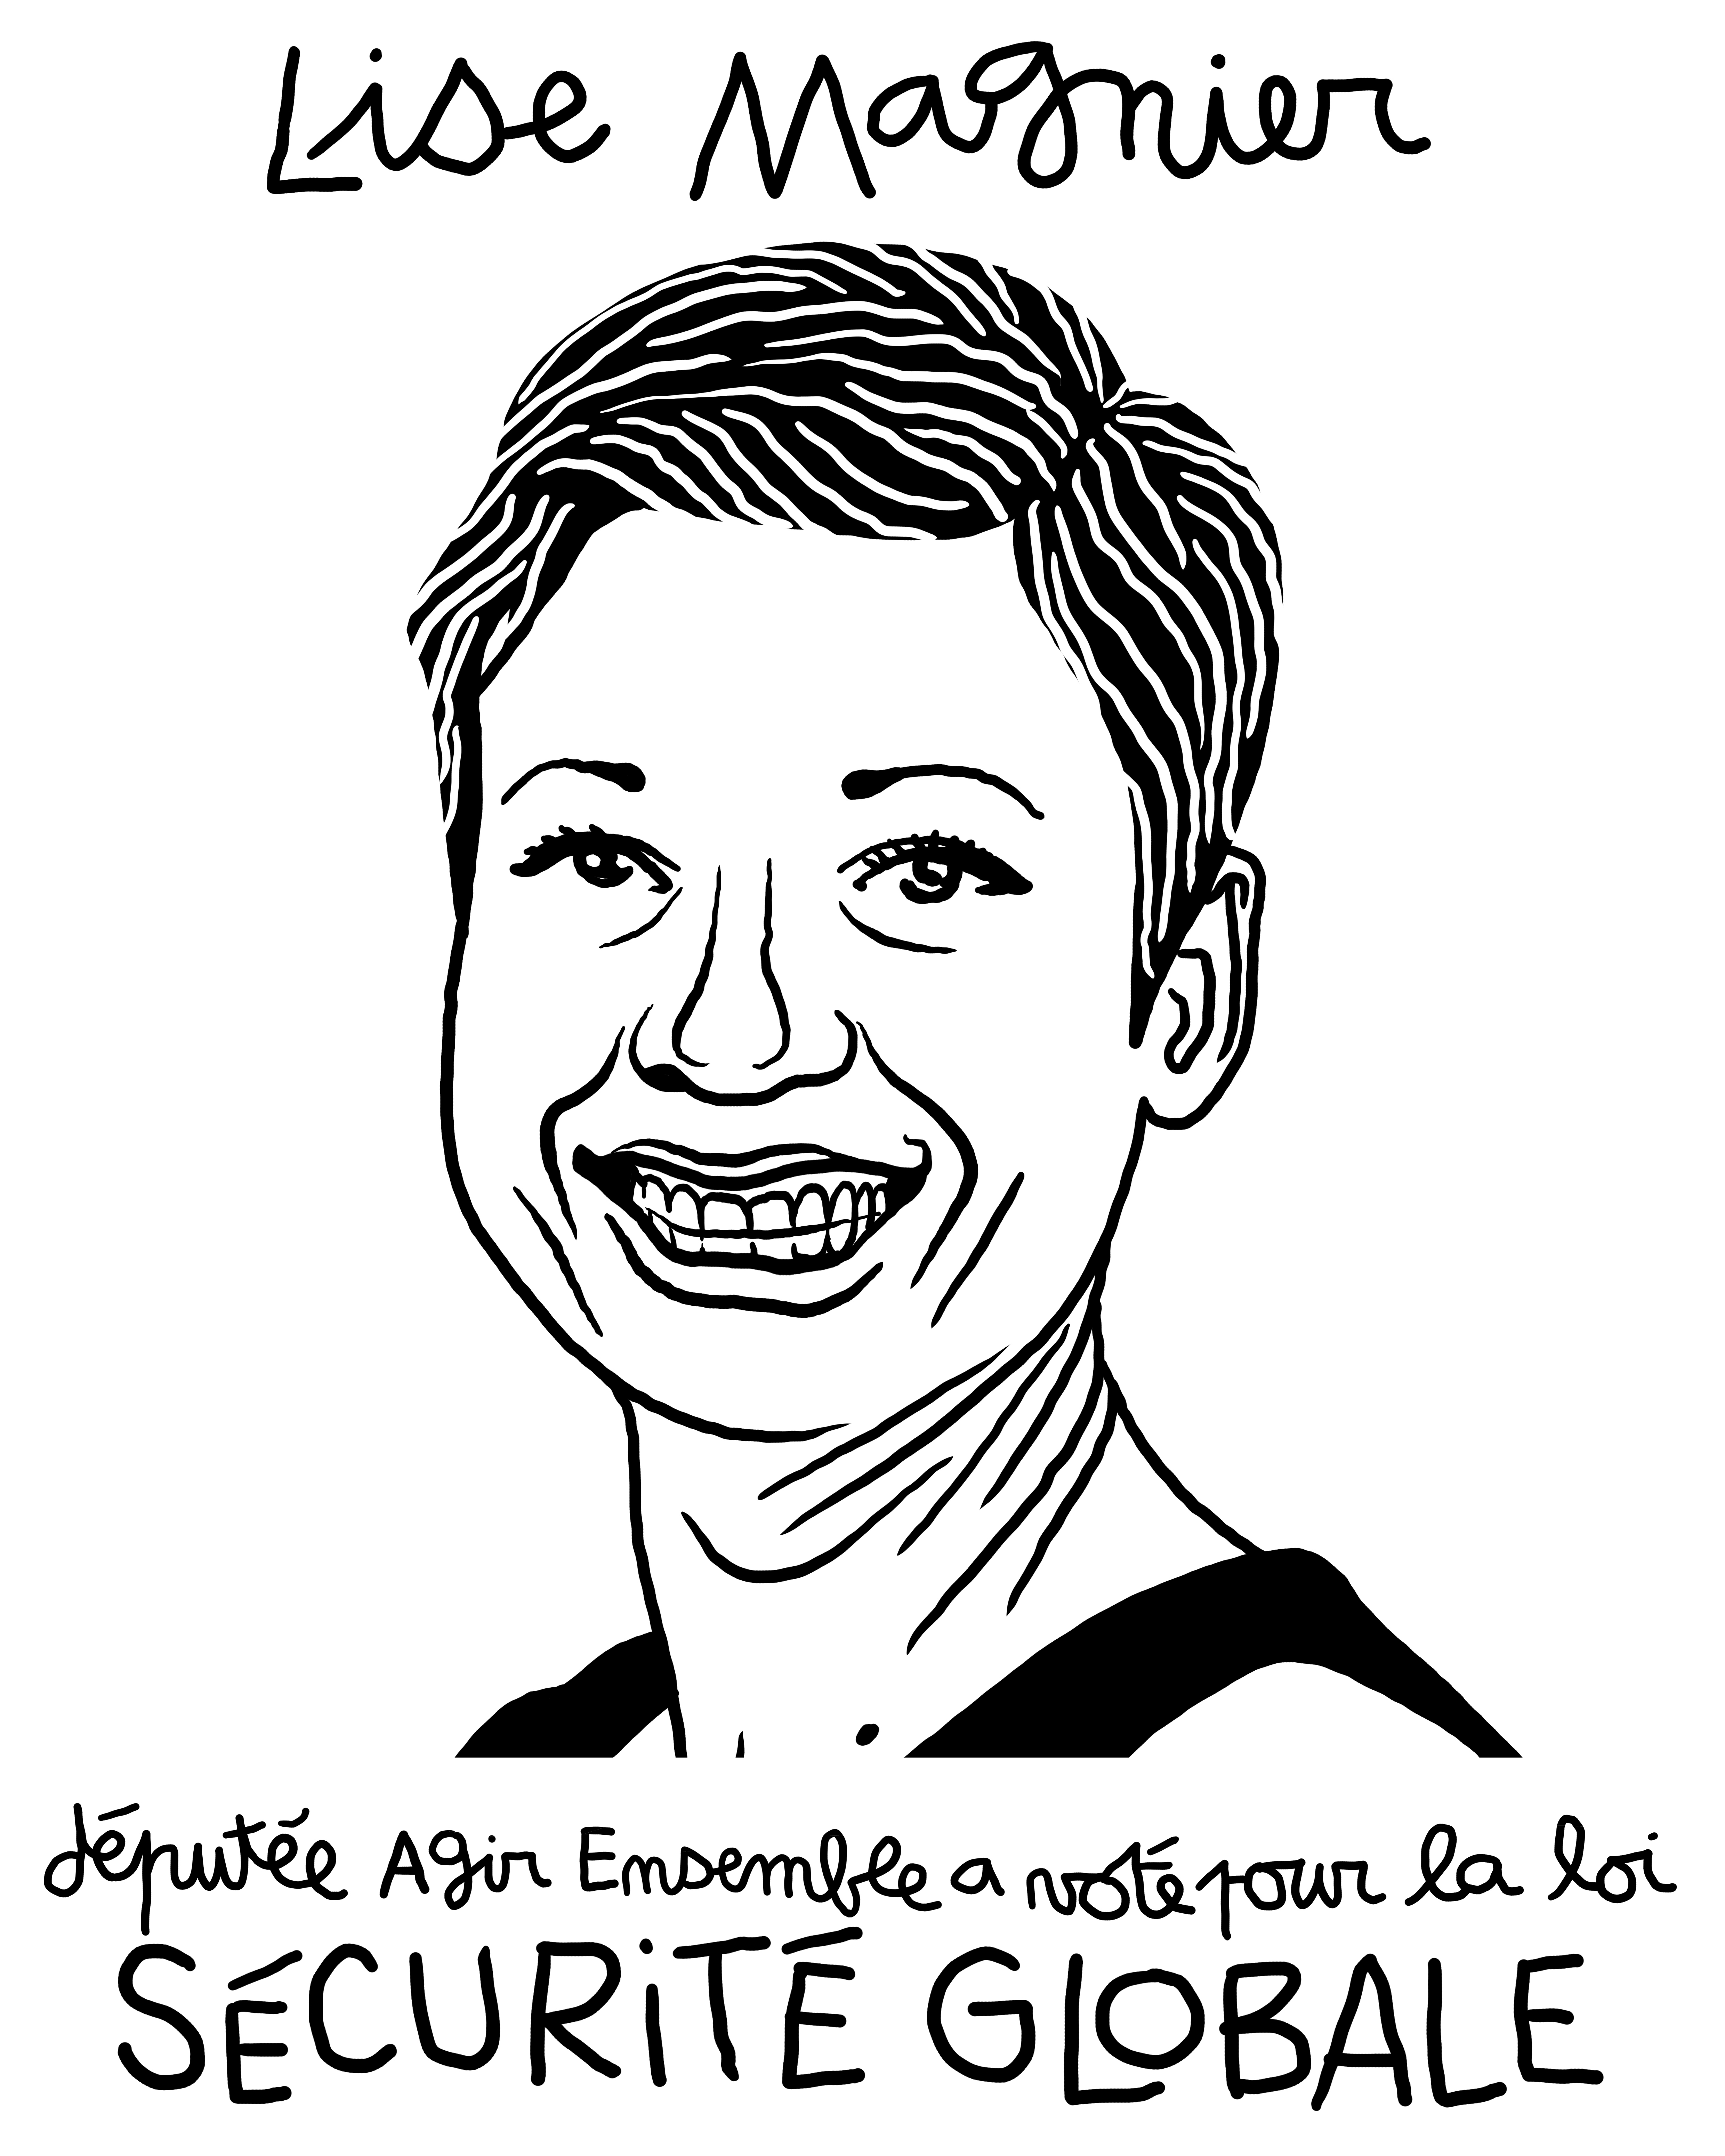 Lise Magnier
députée Agir Ensemble a voté pour la loi
SÉCURiTÉ GLOBALE